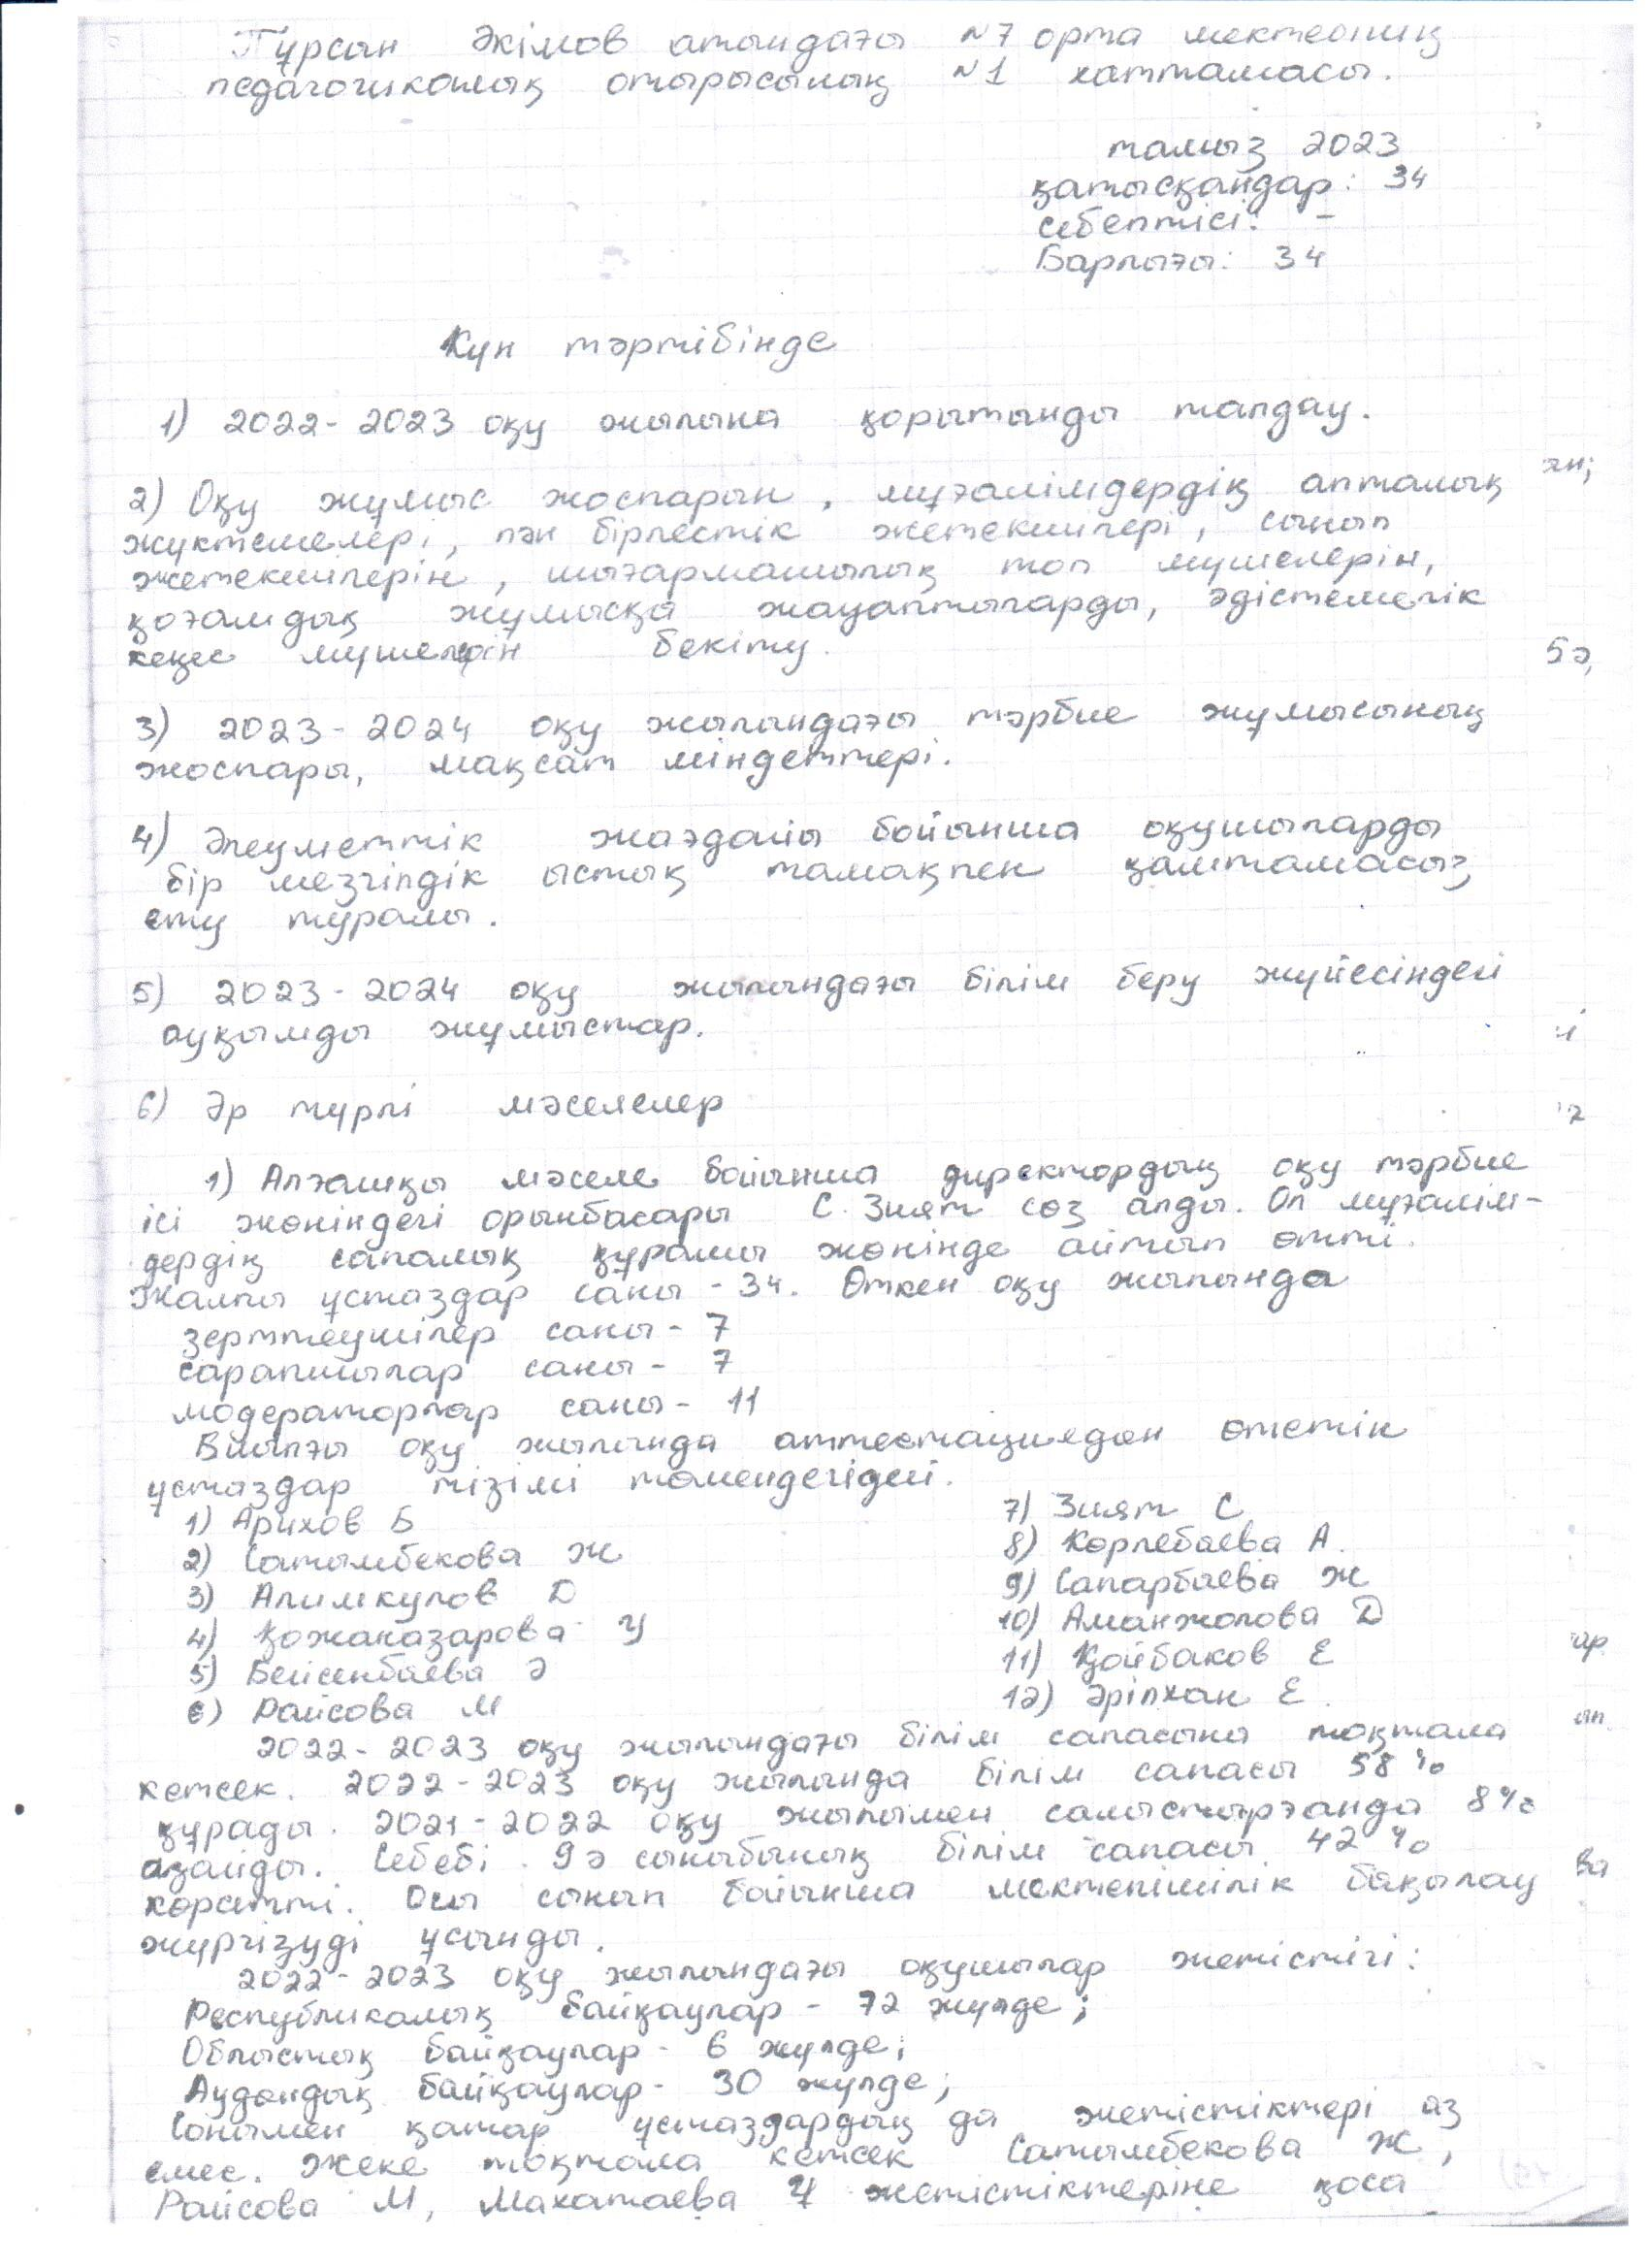 Тұрсын Әкімов атындағы №7 орта мектебінің
педагогикалық отырысының №1 хаттамасы.
тамыз 2023
қатысқандар: 34
себептісі: -
Барлығы: 34
Күн тәртібінде
1) 2022-2023 оқу жылына қорытынды талдау.
2) Оқу жұмыс жоспарын, мұғалімдердің апталық
жүктемелері, пән бірлестік жетекшілері, сынып
жетекшілерін, шығармашылық топ мүшелерін,
қоғамдық жұмысқа жауаптыларды, әдістемелік
кеңес мүшелерін бекіту.
3) 2023-2024 оқу жылындағы тәрбие жұмысының
жоспары, мақсат міндеттері.
4) Әлеуметтік жағдайы бойынша оқушыларды
бір мезгілдік ыстық тамақпен қамтамасыз
ету туралы.
5) 2023-2024 оқу жылындағы білім беру жүйесіндегі
ауқымды жұмыстар.
6) Әр түрлі мәселелер
1) Алғашқы мәселе бойынша директордың оқу тәрбие
ісі жөніндегі орынбасары С. Зият сөз алды. Ол мұғалім-
дердің сапалық құрамы жөнінде айтып өтті.
Жалпы ұстаздар саны - 34. Өткен оқу жылында
зерттеушілер саны - 7
сарапшылар саны - 7
модераторлар саны - 11
Биылғы оқу жылында аттестациядан өтетін
ұстаздар тізімі төмендегідей.
1) Арихов Б
2) Сатымбекова Ж
3) Алимкулов D
4) Қожаназарова У
5) Бейсенбаева Ә
6) Раисова М
7) Зият С
8) Көрпебаева А.
9) Сапарбаева Ж
10) Аманжолова D
11) Қойбаков Е
12) Әріпхан Е.
2022-2023 оқу жылындағы білім сапасына тоқтала
кетсек. 2022-2023 оқу жылында білім сапасы 58%
құрады. 2021-2022 оқу жылымен салыстырғанда 8%
азайды. Себебі 9ә сыныбының білім сапасы 42%
көрсетті. Осы сынып бойынша мектепішілік бақылау
жүргізуді ұсынды.
2022-2023 оқу жылындағы оқушылар жетістігі:
Республикалық байқаулар - 72 жүлде;
Облыстық байқаулар - 6 жүлде;
Аудандық байқаулар - 30 жүлде;
Сонымен қатар ұстаздардың да жетістіктері аз
емес. Жеке тоқтала кетсек Сатымбекова Ж,
Раисова М, Махатаева У жетістіктеріне қоса